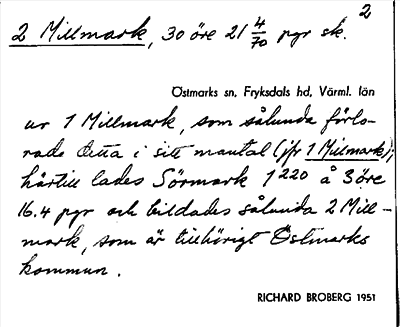 2
2 Millmark, 30 öre 21 4/70 pgr sk.
Östmarks sn, Fryksdals hd, Värml. län
ur 1 Millmark, som sålunda förlo-
rade detta i sitt mantal (jfr 1 Millmark);
härtill lades Sörmark 1 220 å 3 öre
16.4 pgr och bildades sålunda 2 Mill-
mark, som är tillhörigt Östmarks
kommun.
RICHARD BROBERG 1951